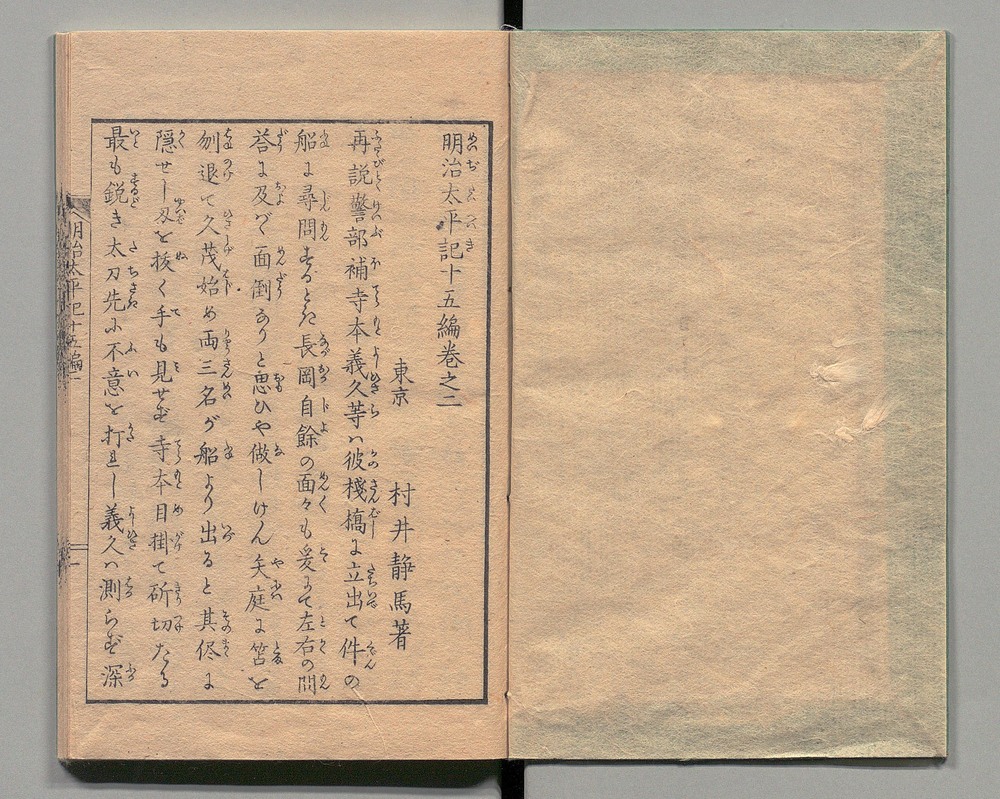 明治太平記十五編巻之二
東京　村井静馬著
再説警部補寺本義久等ハ彼棧橋に立出て件の
船に尋問するとた長岡自餘の面々も爰にて左右の問
荅に及バ面倒なりと思ひや做しけん矢庭に筥を
刎退て久茂始め両三名が船より出ると其侭に
隠せし刄を抜く手も見せず寺本目掛て斫切たる
最も鋭き太刀先に不意を打れし義久ハ測らず深
明治太平記十五編二